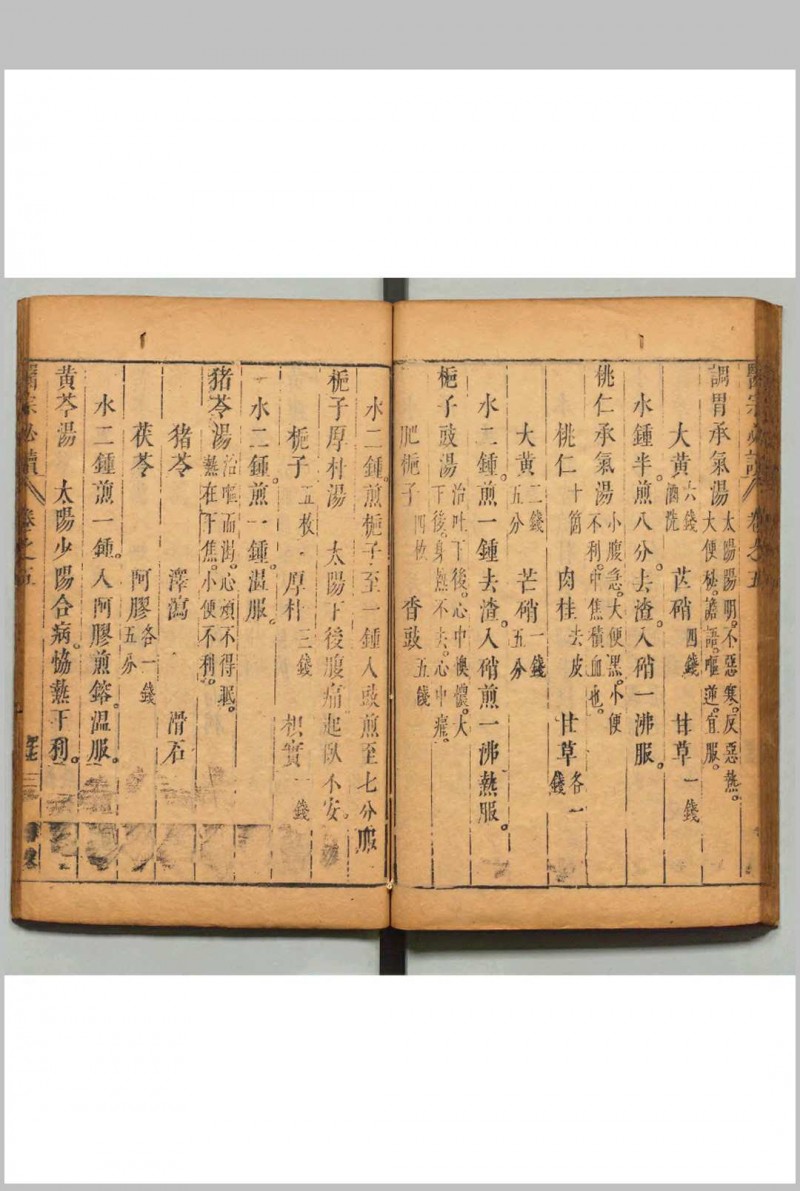 醫宗必讀 卷之五
調胃承氣湯 太陽陽明。不惡寒。反惡熱。大便秘。譫語。嘔逆。宜服。
大黃 六錢酒洗 芒硝 四錢 甘草 一錢
水鍾半。煎八分。去渣。入硝一沸服。
桃仁承氣湯 小腹急。大便黑。小便不利。中焦積血也。
桃仁 十箇 肉桂 去皮 甘草 各一錢
大黃 二錢五分 芒硝 一錢五分
水二鍾。煎一鍾。去渣。入硝煎一沸。熱服。
梔子豉湯 治吐下後。心中懊憹。大下後。身熱不去。心中痛。
肥梔子 四枚 香豉 五錢
水二鍾。煎梔子至一鍾。入豉煎至七分。服
梔子厚朴湯 太陽下後。腹痛。起臥不安。
梔子 五枚 厚朴 三錢 枳實 一錢
水二鍾。煎一鍾。溫服。
豬苓湯 治嘔而渴。心煩不得眠。熱在下焦。小便不利。
豬苓 澤瀉 滑石
茯苓 阿膠 各一錢五分
水二鍾。煎一鍾。入阿膠煎鎔。溫服。
黃芩湯 太陽少陽合病。恊熱下利。
醫宗必讀 卷之五